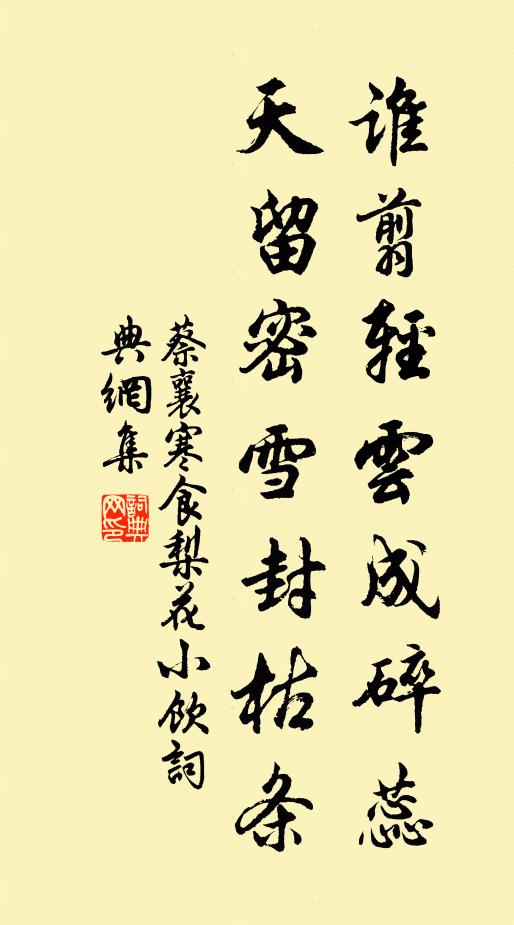 誰翦輕雲成碎蕊
天留密雪封枯条
蔡襄寒食梨花小飲詞
典網集
詞典網印